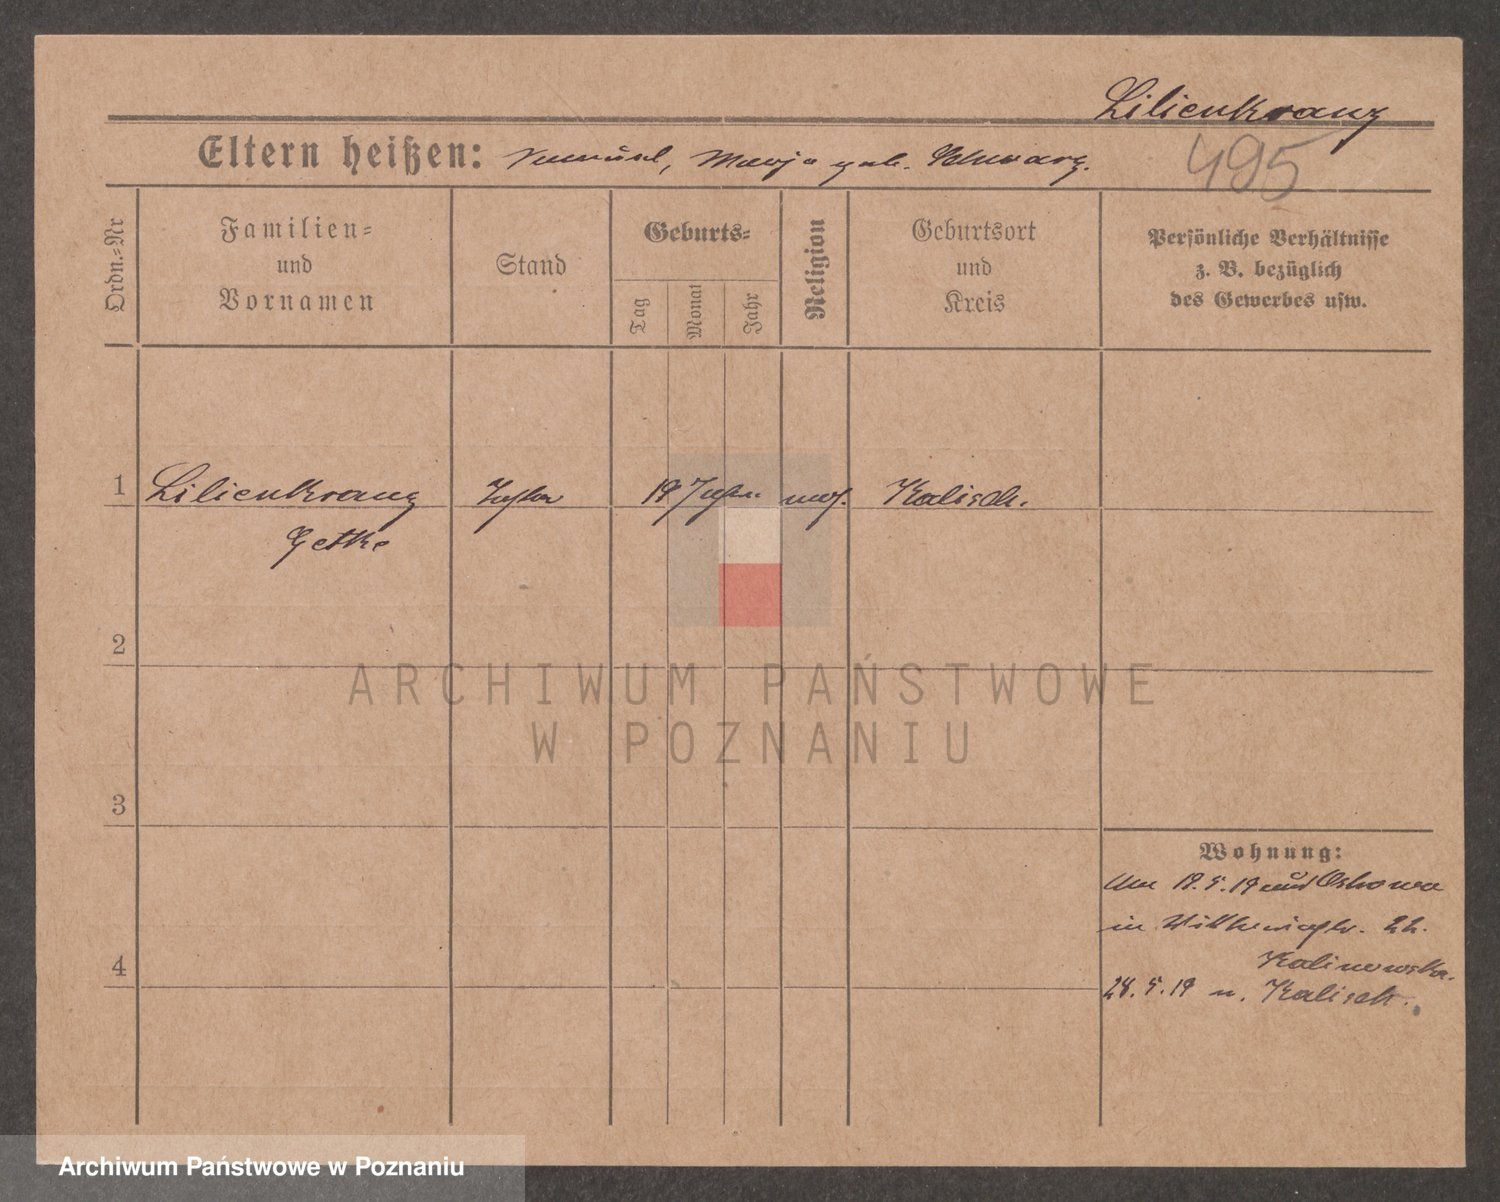 Lilienkranz
Eltern heißen: Marja geb. Schwarz.
495
Ordn.=Nr
Familien=
und
Vornamen
Stand
Geburts=
Tag
Monat
Jahr
Religion
Geburtsort
und
Kreis
Persönliche Verhältnisse
z. B. bezüglich
des Gewerbes usw.
1 Lilienkranz 19 Kalisch.
Getke
2
3
4
Wohnung:
19.5.19 Ostrowa
in 22.
Kalinowska.
28.5.19 n. Kalisch.
ARCHIWUM PAŃSTWOWE
W POZNANIU
Archiwum Państwowe w Poznaniu